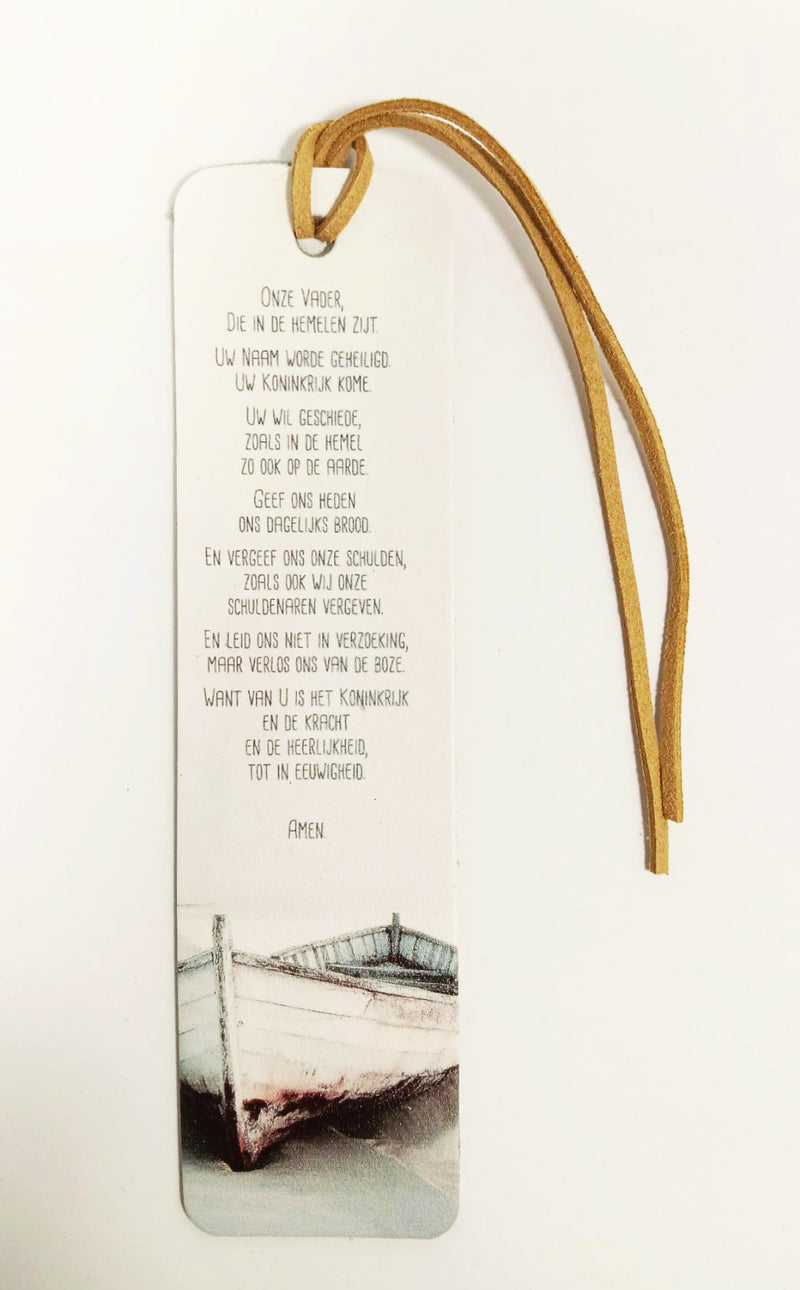 Onze Vader,
Die in de hemelen zijt.
Uw Naam worde geheiligd.
Uw Koninkrijk kome.
Uw wil geschiede,
zoals in de hemel
zo ook op de aarde.
Geef ons heden
ons dagelijks brood.
En vergeef ons onze schulden,
zoals ook wij onze
schuldenaren vergeven.
En leid ons niet in verzoeking,
maar verlos ons van de boze.
Want van U is het Koninkrijk
en de kracht
en de heerlijkheid,
tot in eeuwigheid.
Amen.